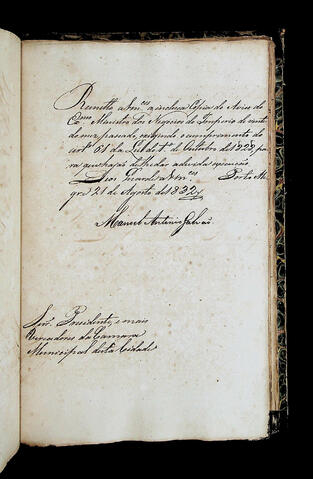 Remetto a Vm.ces a incluza Copia do Aviso do
Ex.mo Ministro dos Negocios do Imperio de vinte
do mez passado, exigindo o cumprimento do
art.o 61 da Lei do 1.o de Outubro de 1828 pa
ra que hajão de lhe dar a devida execução
Deos Guarde a Vm.ces Porto Ale
gre 21 de Agosto de 1832
Manoel Antonio Galvão
Snr.es Prezidente, e mais
Vereadores da Camara
Municipal desta Cidade